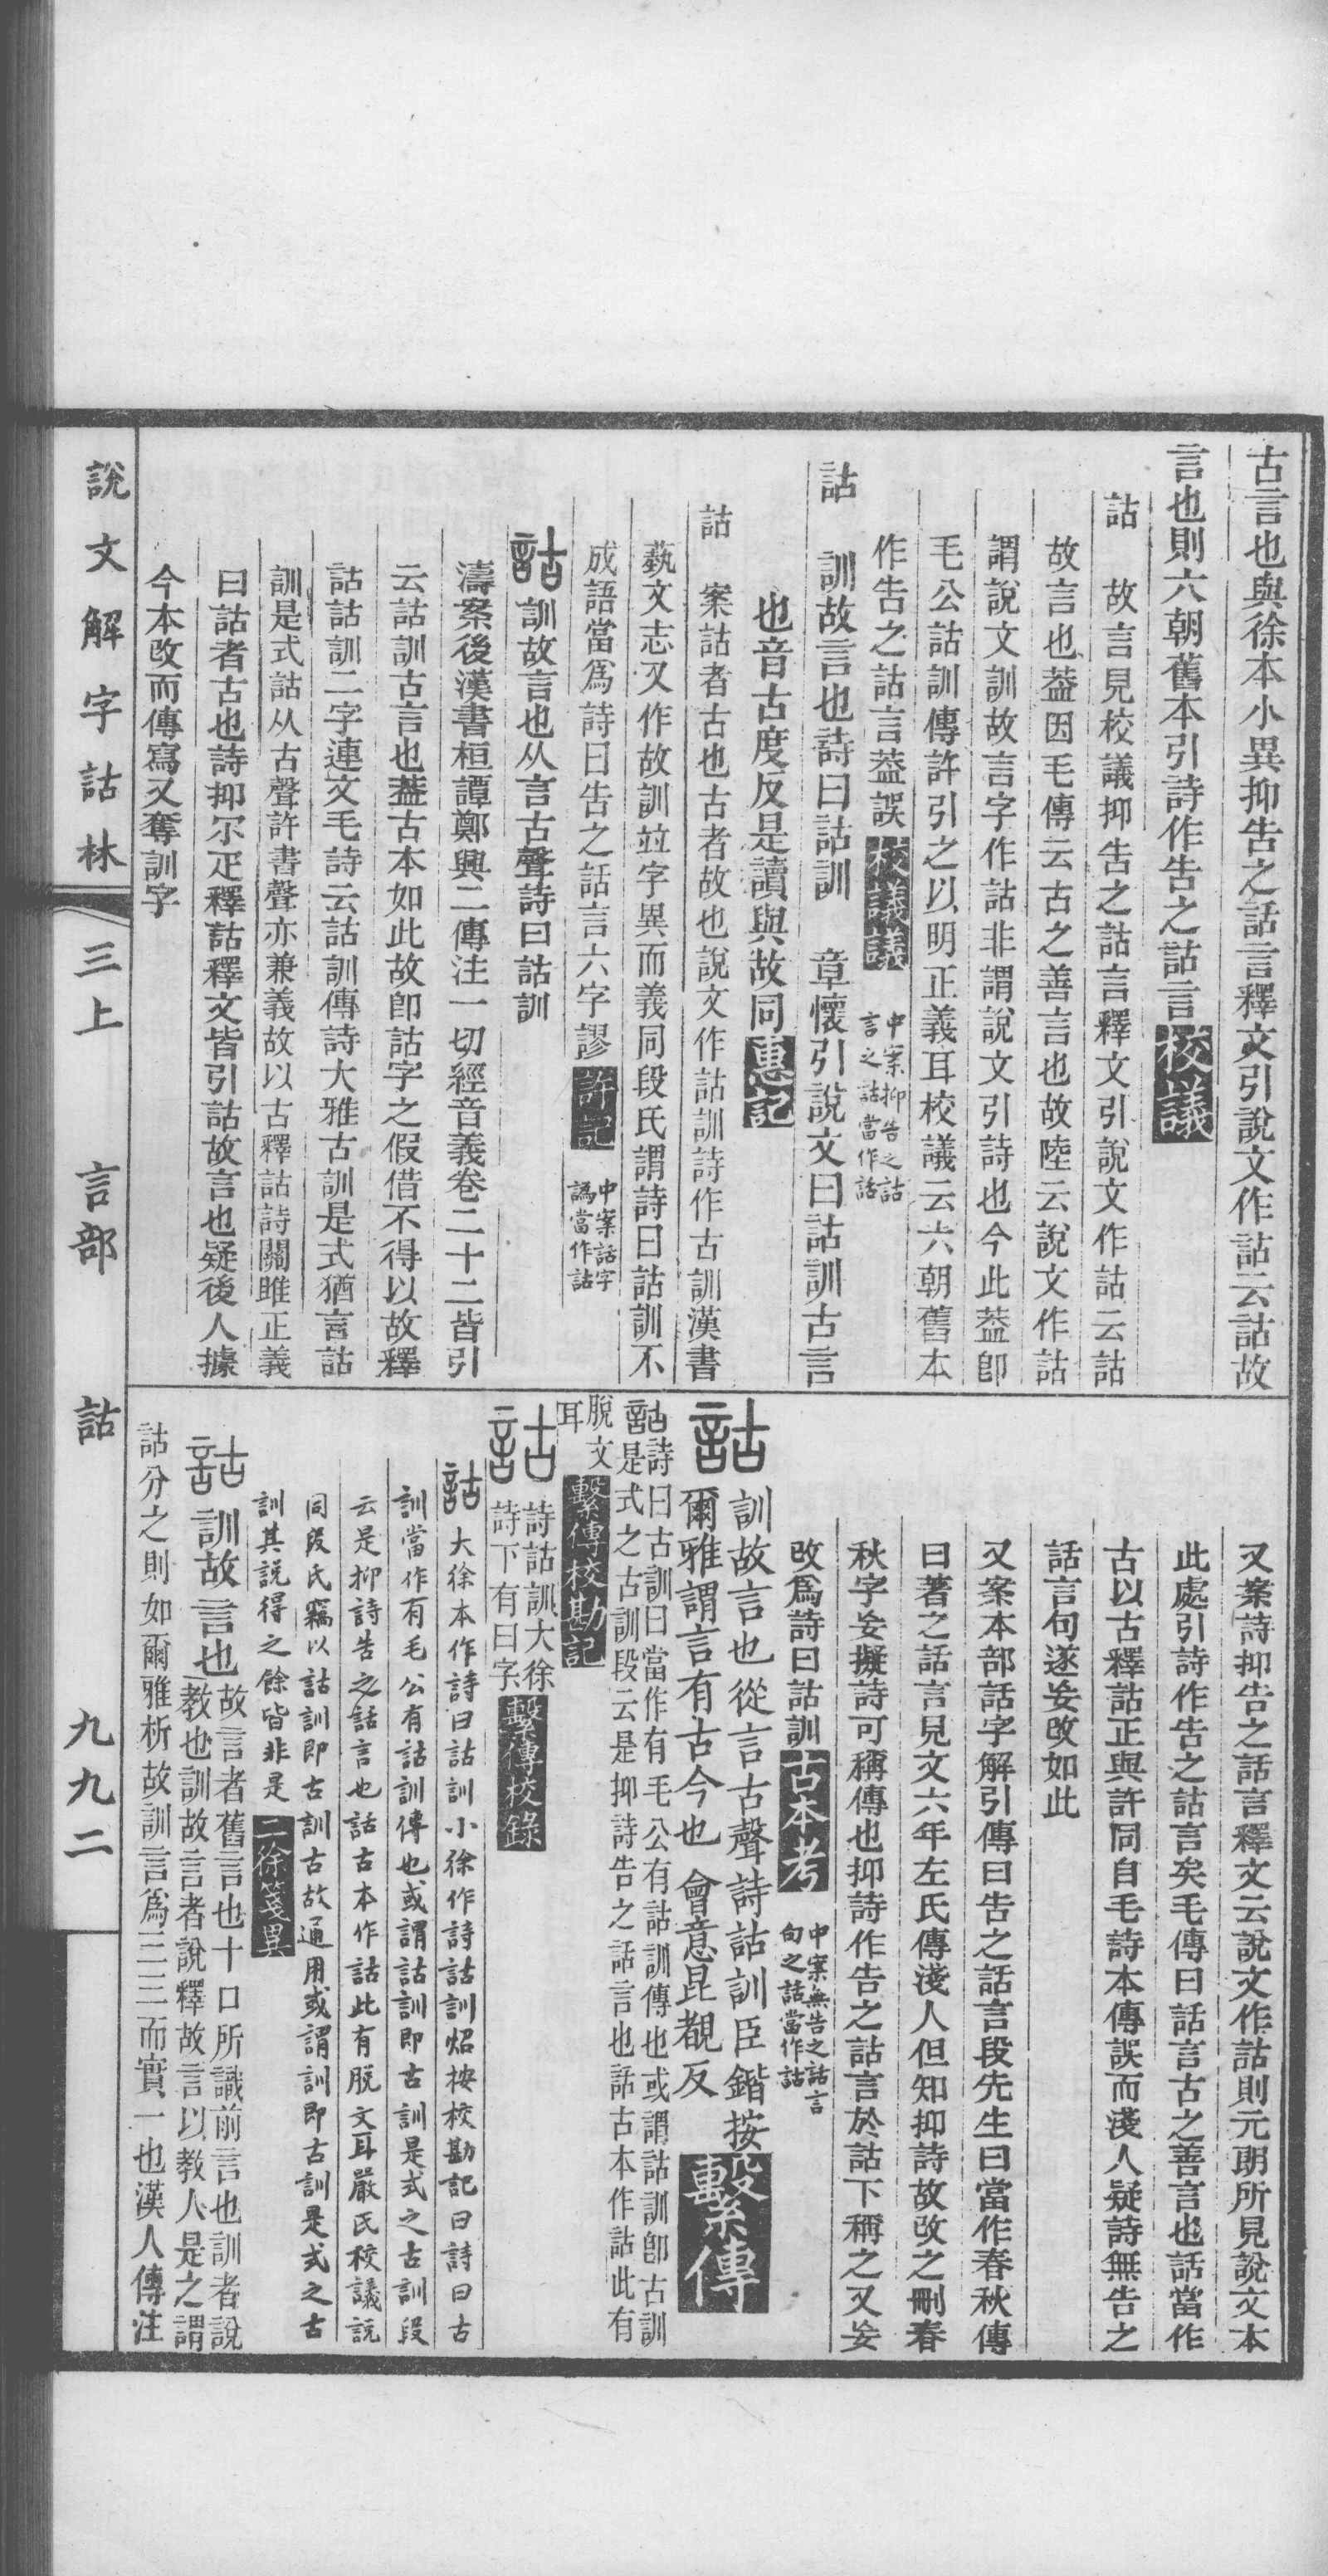 古言也與徐本小異抑告之話言釋文引說文作詁云詁故
言也則六朝舊本引詩作告之詁言校議
詁　故言見校議抑告之詁言釋文引說文作詁云詁
故言也葢因毛傳云古之善言也故陸云說文作詁
謂說文訓故言字作詁非謂說文引詩也今此葢卽
毛公詁訓傳許引之以明正義耳校議云六朝舊本
作告之詁言葢誤校議議
中案抑告之詁
言之詁當作話
詁　訓故言也詩曰詁訓　章懷引說文曰詁訓古言
也音古度反是讀與故同惠記
詁　案詁者古也古者故也說文作詁訓詩作古訓漢書
藝文志又作故訓並字異而義同段氏謂詩曰詁訓不
成語當爲詩曰告之話言六字謬許記
中案話字
譌當作詁
詁訓故言也从言古聲詩曰詁訓
濤案後漢書桓譚鄭興二傳注一切經音義卷二十二皆引
云詁訓古言也葢古本如此故卽詁字之假借不得以故釋
詁詁訓二字連文毛詩云詁訓傳詩大雅古訓是式猶言詁
訓是式詁从古聲許書聲亦兼義故以古釋詁詩關雎正義
曰詁者古也詩抑尒疋釋詁釋文皆引詁故言也疑後人據
今本改而傳寫又奪訓字
又案詩抑告之話言釋文云說文作詁則元朗所見說文本
此處引詩作告之詁言矣毛傳曰話言古之善言也話當作
古以古釋詁正與許同自毛詩本傳誤而淺人疑詩無告之
話言句遂妄改如此
又案本部話字解引傳曰告之話言段先生曰當作春秋傳
曰著之話言見文六年左氏傳淺人但知抑詩故改之刪春
秋字妄擬詩可稱傳也抑詩作告之詁言於詁下稱之又妄
改爲詩曰詁訓古本考
中案無告之話言
句之話當作詁
詁訓故言也從言古聲詩詁訓臣鍇按
爾雅謂言有古今也　會意昆覩反　繫傳
詁詩曰古訓曰當作有毛公有詁訓傳也或謂詁訓卽古訓
是式之古訓段云是抑詩告之話言也話古本作詁此有
脫文
耳繫傳校勘記
詁詩詁訓大徐
詩下有曰字繫傳校錄
詁大徐本作詩曰詁訓小徐作詩詁訓炤按校勘記曰詩曰古
訓當作有毛公有詁訓傳也或謂詁訓即古訓是式之古訓段
云是抑詩告之話言也話古本作詁此有脫文耳嚴氏校議說
同段氏竊以詁訓即古訓古故通用或謂訓即古訓是式之古
訓其說得之餘皆非是二徐箋異
詁訓故言也
故言者舊言也十口所識前言也訓者說
教也訓故言者說釋故言以教人是之謂
詁分之則如爾雅析故訓言爲三三而實一也漢人傳注
說文解字詁林　三上　言部　詁　九九二